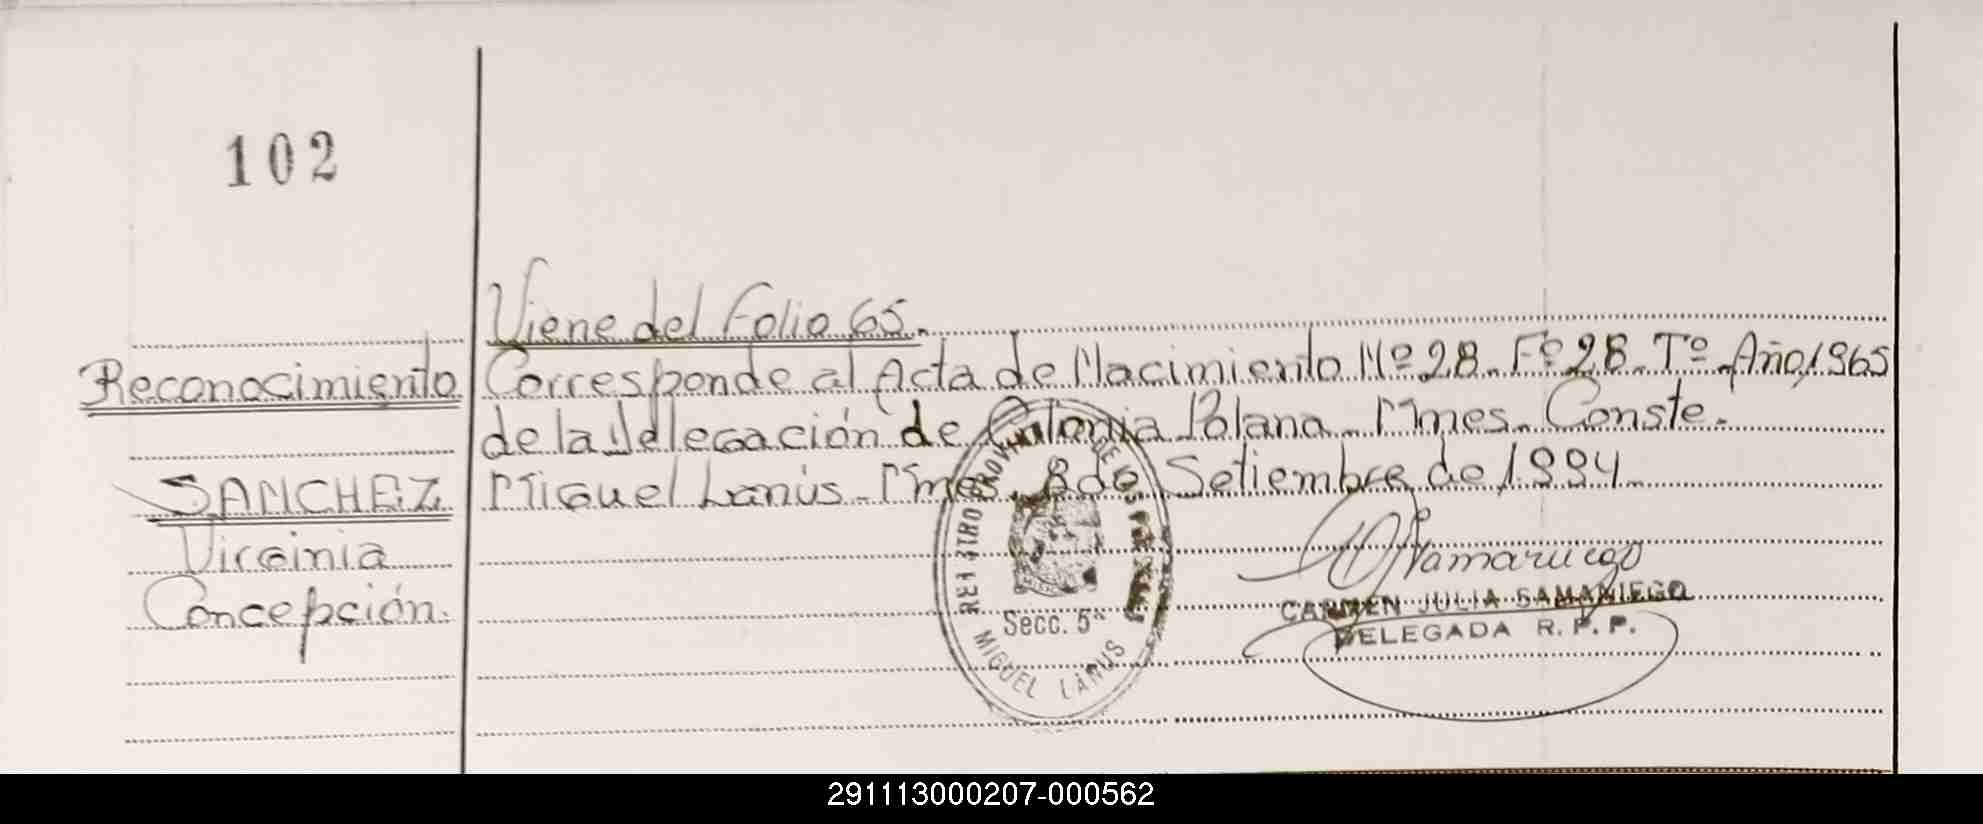 102
Viene del Folio 65.
Reconocimiento
Corresponde al Acta de Nacimiento Nº 28. Fº 28. Tº. Año 1965
de la Delegación de Colonia Polana. Mnes. Conste.
SANCHEZ
Miguel Lanús. Mnes. 8 de Setiembre de 1994
Virginia
Concepción.
CARMEN JULIA SAMANIEGO
DELEGADA R. P. P.
Secc. 5ª
MIGUEL LANUS
291113000207-000562